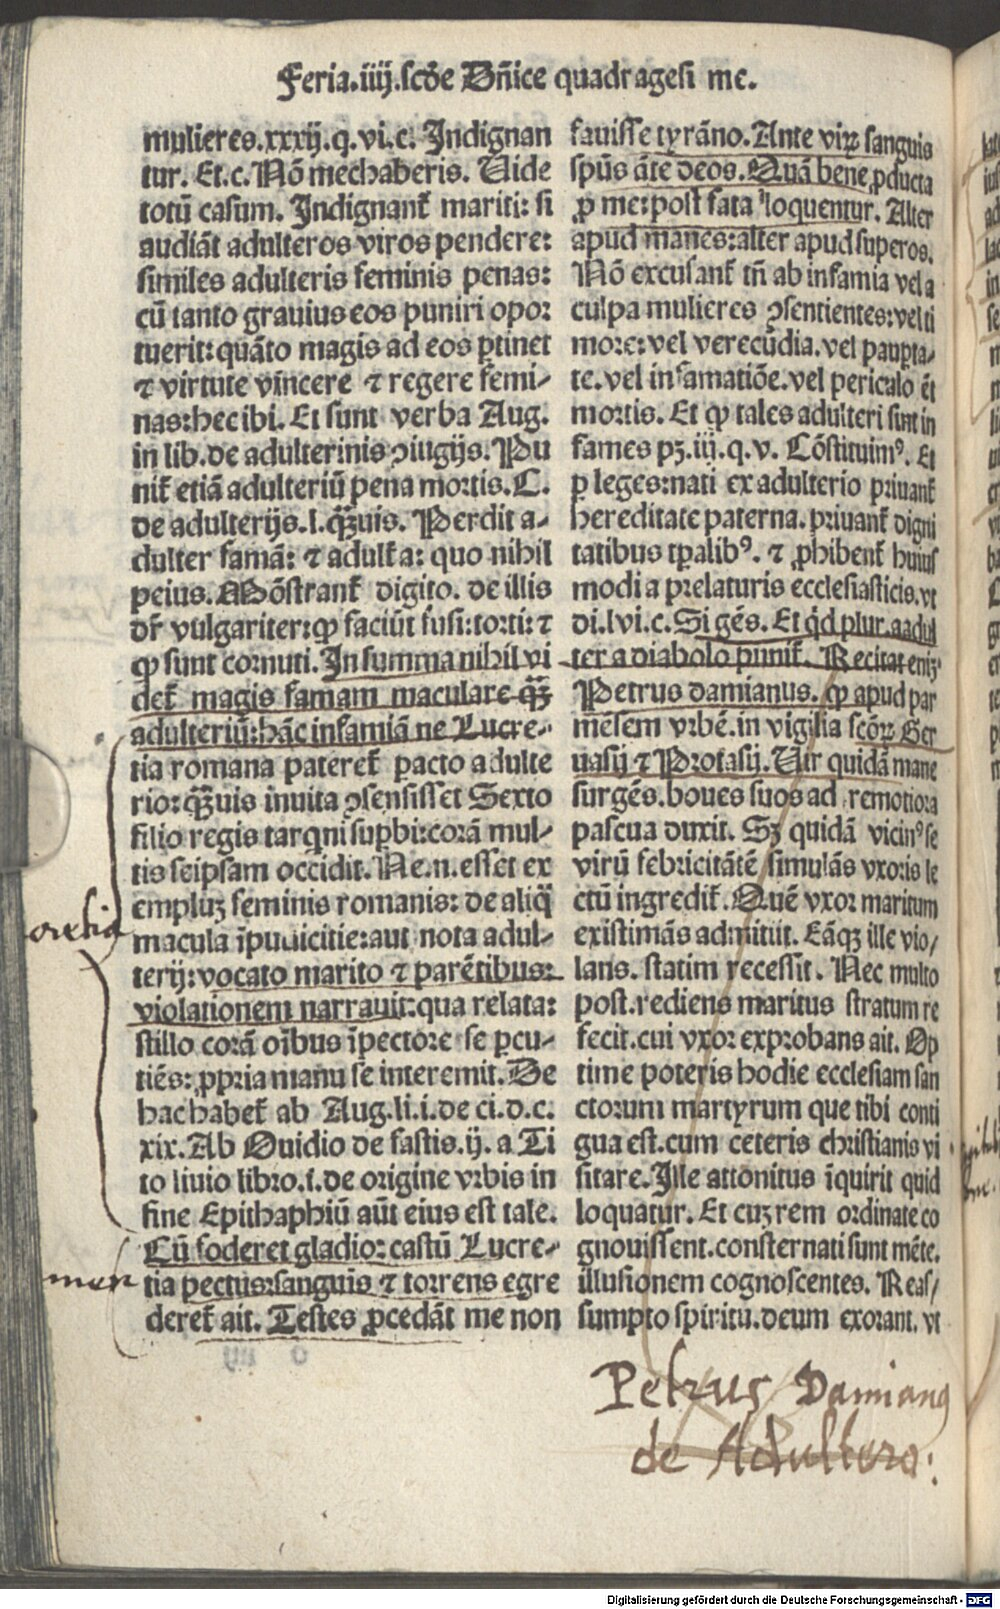 Feria.iiij.scōe Dñice quadragesi me.
mulieres.xxxij.q.vi.c. Indignan
tur. Et.c. Nō mechaberis. Uide
totū casum. Indignant᷑ mariti: si
audiāt adulteros viros pendere:
similes adulteris feminis penas:
cū tanto grauius eos puniri opor
tuerit: quāto magis ad eos ꝑtinet
⁊ virtute vincere ⁊ regere femi-
nas: hec ibi. Et sunt verba Aug.
in lib. de adulterinis ↄiugijs. Pu
nit᷑ etiā adulteriū pena mortis. C.
de adulterijs. l. qꝫ̄uis. Perdit a-
dulter famā: ⁊ adult᷑a: quo nihil
peius. Mōstrant᷑ digito. de illis
dr̄ vulgariter: ꝙ faciūt fusi: torti: ⁊
ꝙ sunt cornuti. In summa nihil vi
det᷑ magis famam maculare qꝫ̄
adulteriū: hāc infamiā ne Lucre-
tia romana pateret᷑ pacto adulte
rio: qꝫ̄uis inuita ↄsensisset Sexto
filio regis tarqni suꝑbi: corā mul-
tis seipsam occidit. Ne.n.esset ex
empluꝫ feminis romanis: de aliq̄
macula īpudicitie: aut nota adul-
terij: vocato marito ⁊ parētibus:
violationem narrauit: qua relata:
stillo corā oībus īpectore se ꝑcu-
tiēs: ꝓpria manu se interemit. De
hac habet᷑ ab Aug. li.i. de ci.d.c.
xix. Ab Ouidio de fastis.ij. a Ti
to liuio libro.i. de origine vrbis in
fine Epithaphiū aūt eius est tale.
Cū foderet gladio: castū Lucre-
tia pectus: sanguis ⁊ torrens egre
deret᷑ ait. Testes ꝓcedāt me non
fauisse tyrāno. Ante viꝝ sanguis
spūs āte deos. Quā bene ꝓducta
ꝓ me: post fata loquentur. Alter
apud manes: alter apud superos.
Nō excusant᷑ tn̄ ab infamia vel a
culpa mulieres ↄsentientes: vel ti
more: vel verecūdia. vel pauꝑta-
te. vel infamatiōe. vel periculo ēt
mortis. Et ꝙ tales adulteri sint in
fames pꝫ.iij.q.v. Cōstituimꝰ. Et
ꝑ leges: nati ex adulterio priuant᷑
hereditate paterna. priuant᷑ digni
tatibus tꝑalibꝰ. ⁊ ꝓhibent᷑ huius
modi a prelaturis ecclesiasticis. vt
di.lvi.c. Si gēs. Et qd̄ plur. a adul
ter a diabolo punit᷑. Recitat eniꝫ
Petrus damianus. ꝙ apud par
mēsem vrbē. in vigilia scōꝝ Ger
uasij ⁊ Protasij. Uir quidā mane
surgēs. boues suos ad remotiora
pascua duxit. Sꝫ quidā vicinꝰ se
virū febricitātē simulās vxoris le
ctū ingredit᷑. Quē vxor maritum
existimās admittit. Eāqꝫ ille vio/
lans. statim recessit. Nec multo
post. rediens maritus stratum re
fecit. cui vxor exprobans ait. Op
time poteris hodie ecclesiam san
ctorum martyrum que tibi conti
gua est. cum ceteris christianis vi
sitare. Ille attonitus īquirit quid
loquatur. Et cuꝫ rem ordinate co
gnouissent. consternati sunt mēte.
illusionem cognoscentes. Reas/
sumpto spiritu. deum exorant. vt
Petrus Damianꝰ
de Adultero:
Digitalisierung gefördert durch die Deutsche Forschungsgemeinschaft - DFG